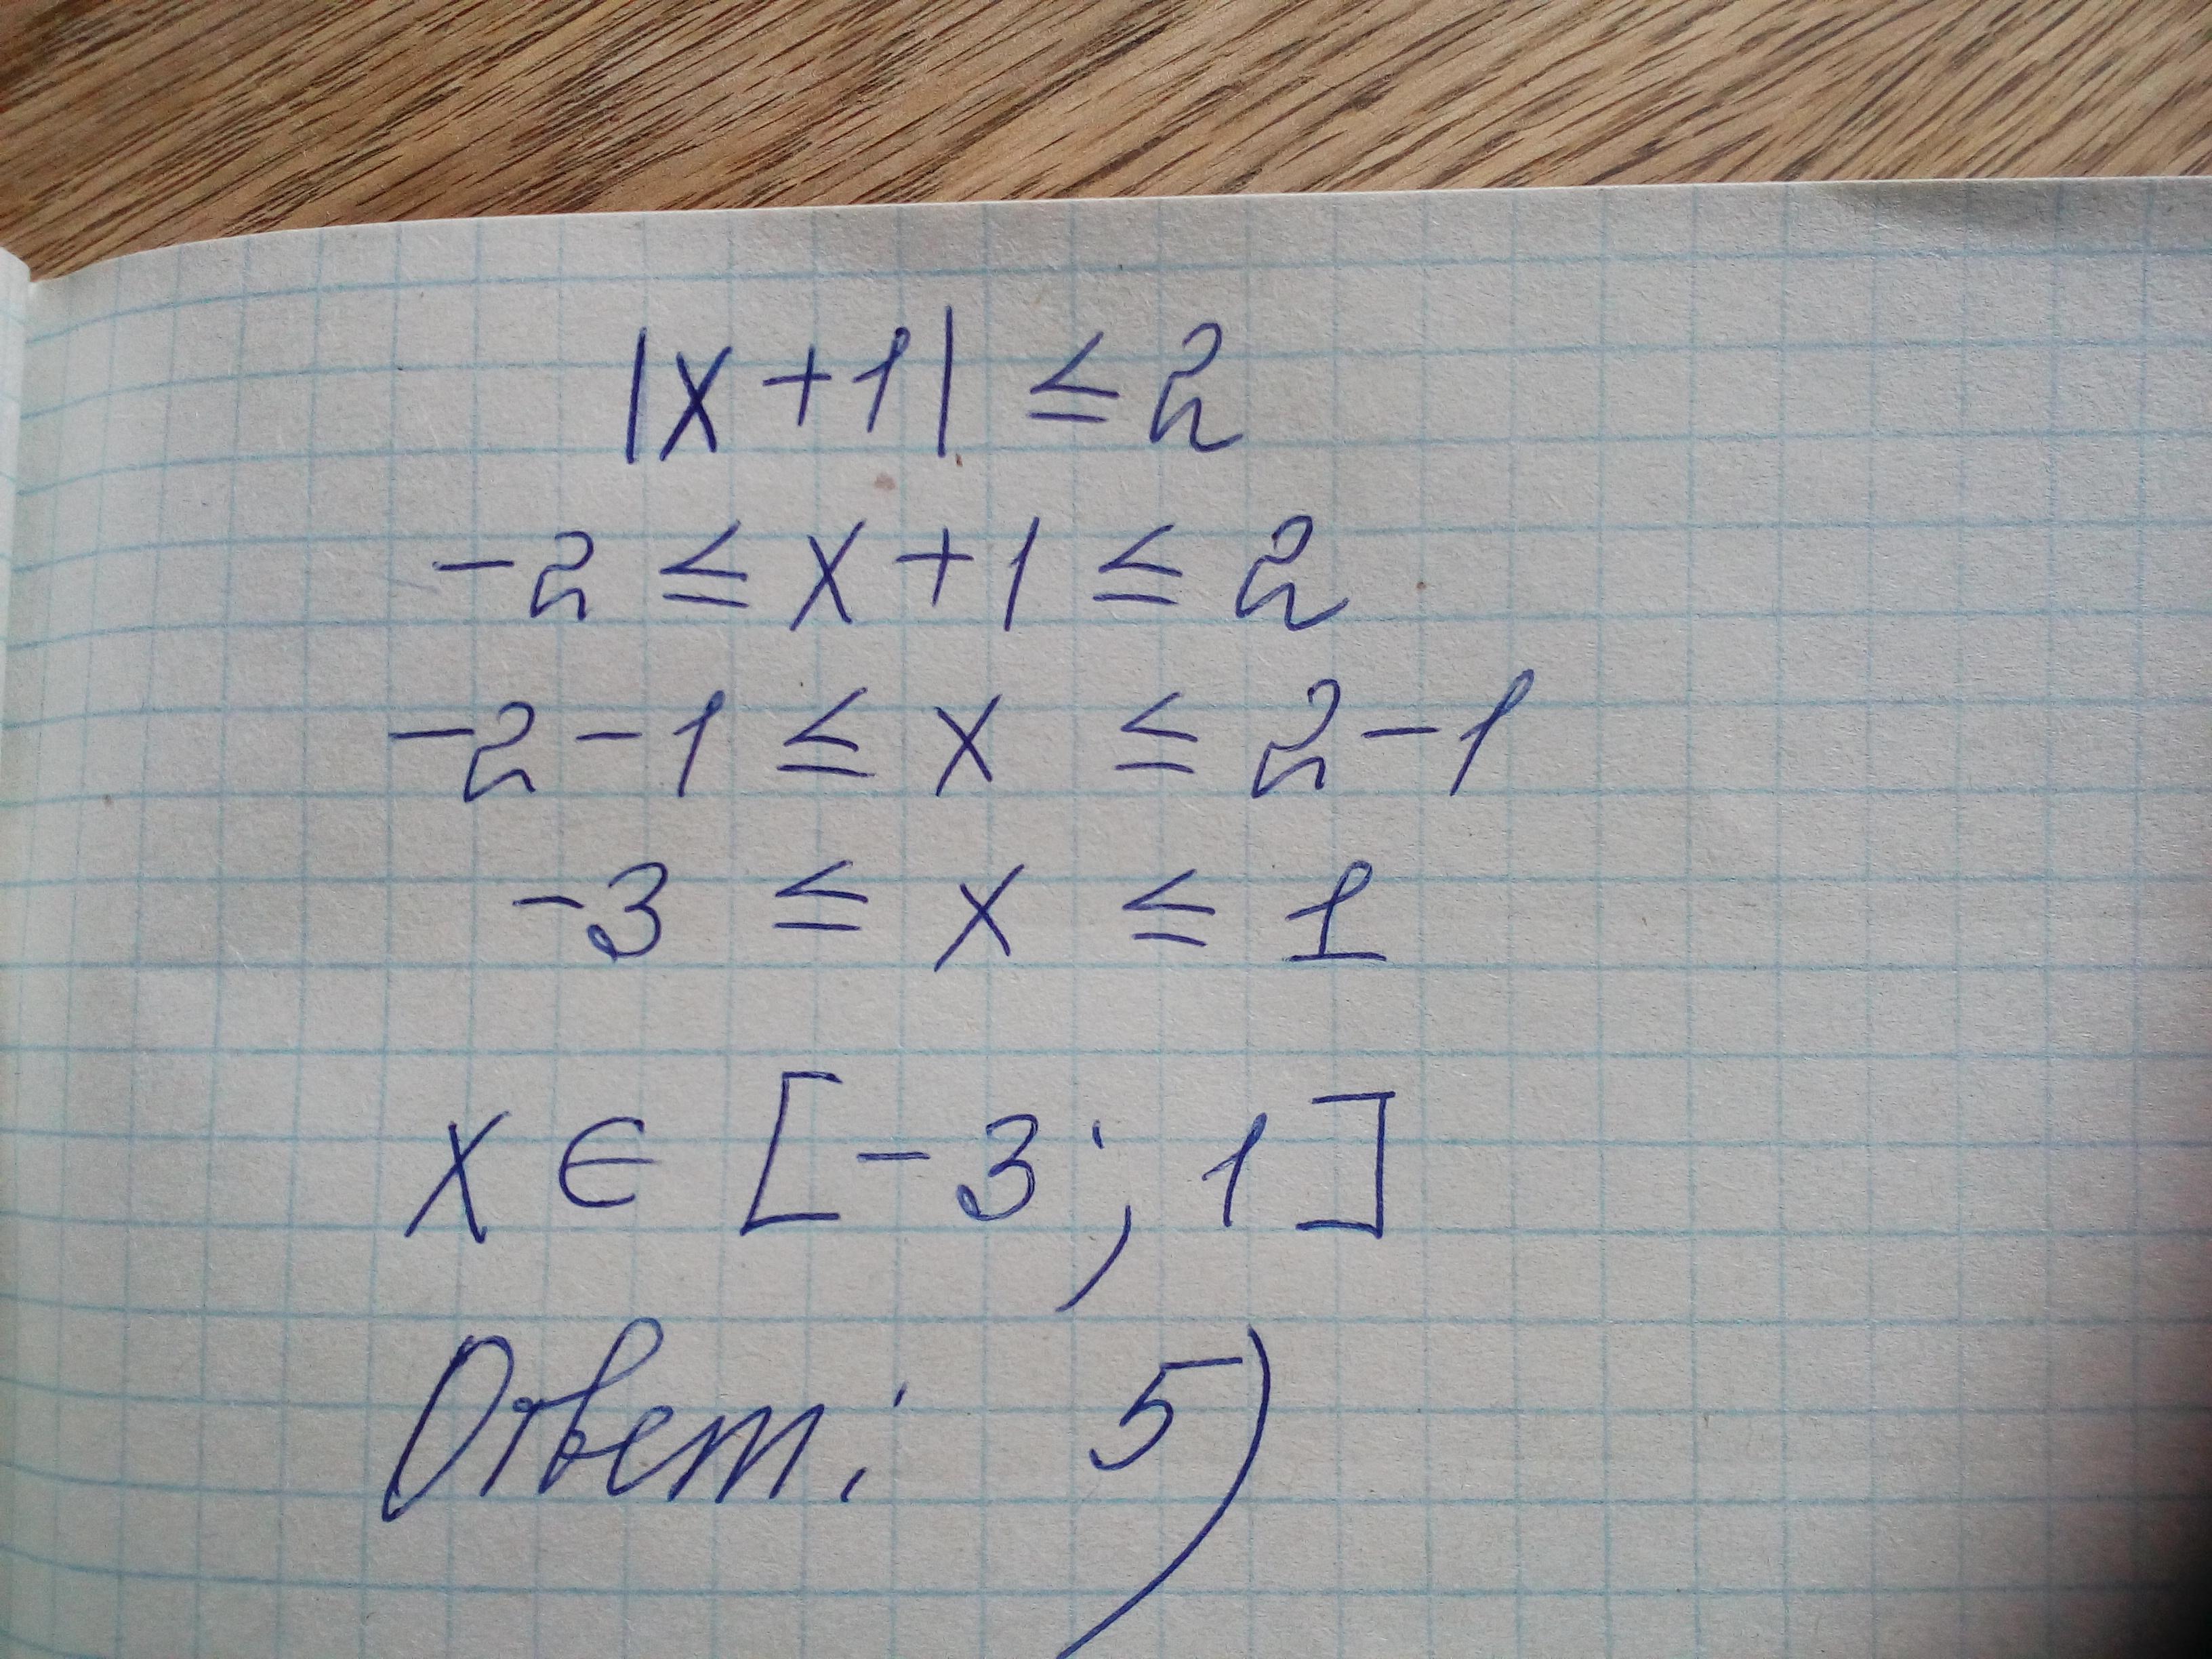 |x+1| ≤ 2
-2 ≤ x+1 ≤ 2
-2-1 ≤ x ≤ 2-1
-3 ≤ x ≤ 1
x ∈ [-3; 1]
Ответ: 5)